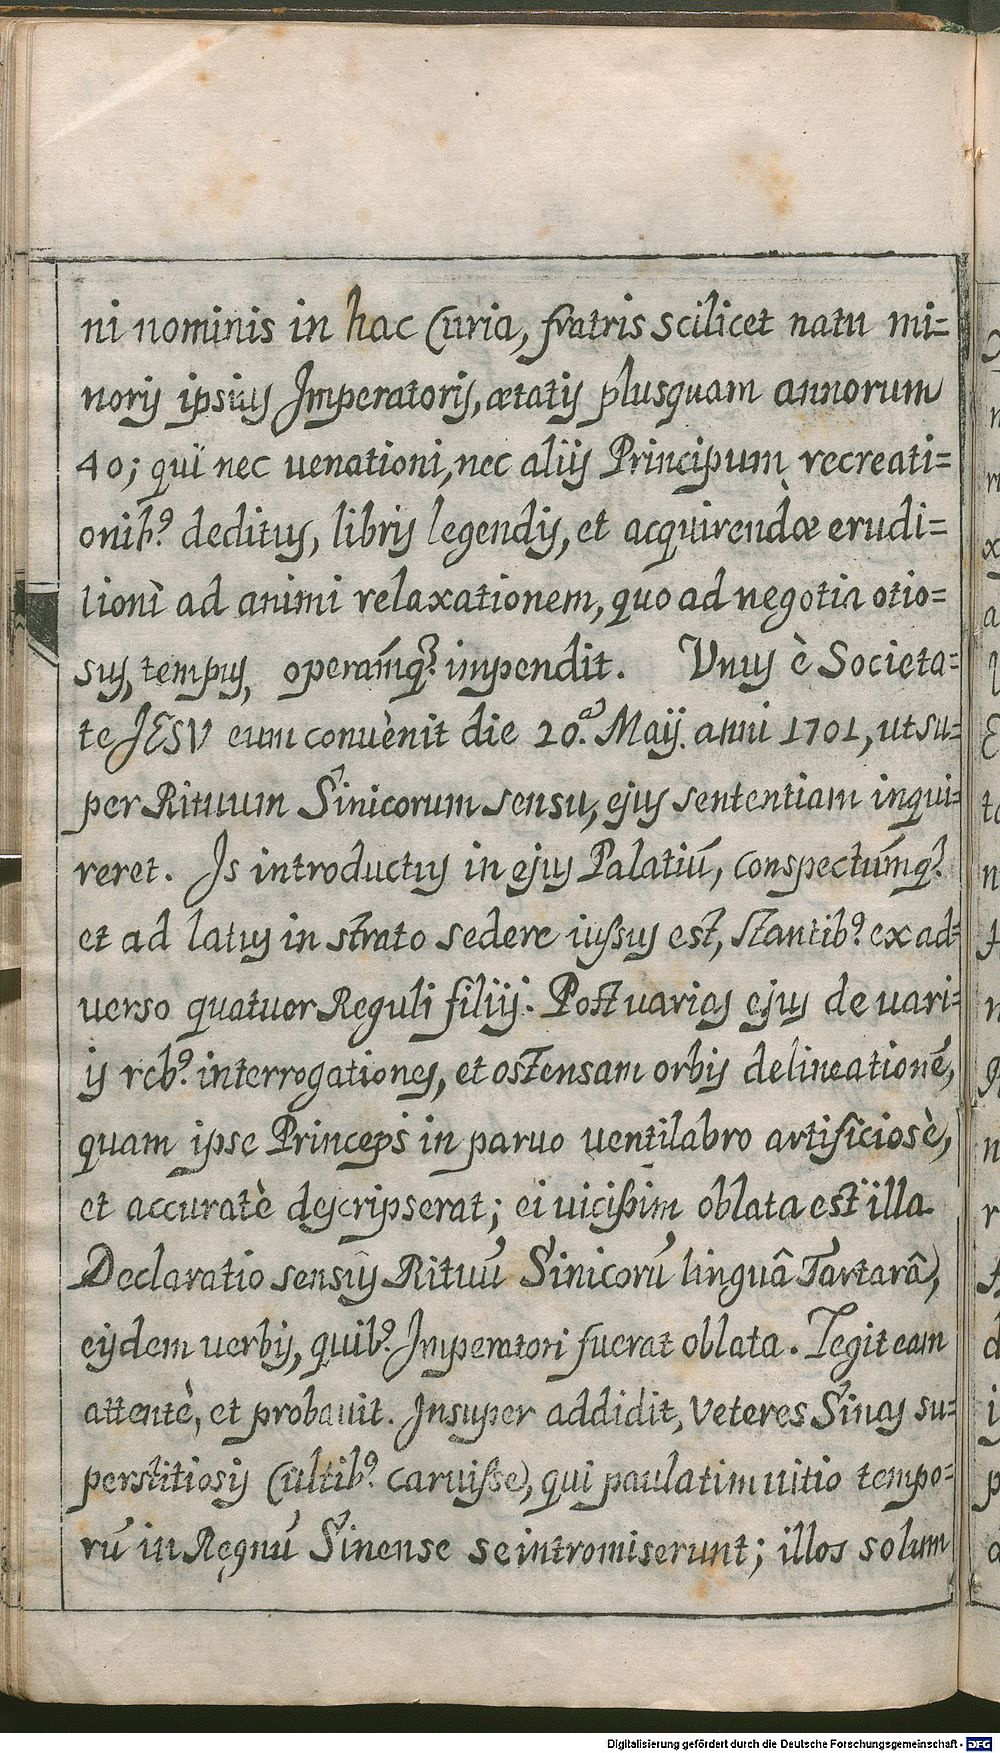 ni nominis in hac Curia, fratris scilicet natu mi=
noris ipsius Imperatoris, ætatis plusquam annorum
40; qui nec uenationi, nec aliis Principum recreati=
onib9 deditus, libris legendis, et acquirendæ erudi=
tioni ad animi relaxationem, quo ad negotia otio=
sus, tempus, operamq3 impendit. Vnus è Societa=
te JESV eum conuènit die 20.a Maij. anni 1701, ut su=
per Rituum Sinicorum sensu, ejus sententiam inqui=
reret. Is introductus in ejus Palatiũ, conspectumq3
et ad latus in strato sedere iussus est, stantib9 ex ad=
uerso quatuor Reguli filiis. Post uarias ejus de uari=
is reb9 interrogationes, et ostensam orbis delineationẽ,
quam ipse Princeps in paruo uentilabro artificiosè,
et accuratè descripserat; ei uicissim oblata est illa
Declaratio sensûs Rituũ Sinicorũ linguâ Tartarâ,
eisdem uerbis, quib9 Imperatori fuerat oblata. Legit eam
attentè, et probauit. Insuper addidit, Veteres Sinas su=
perstitiosis Cultib9 caruisse, qui paulatim uitio tempo=
rũ in Regnũ Sinense se intromiserunt; illos solum
Digitalisierung gefördert durch die Deutsche Forschungsgemeinschaft - DFG